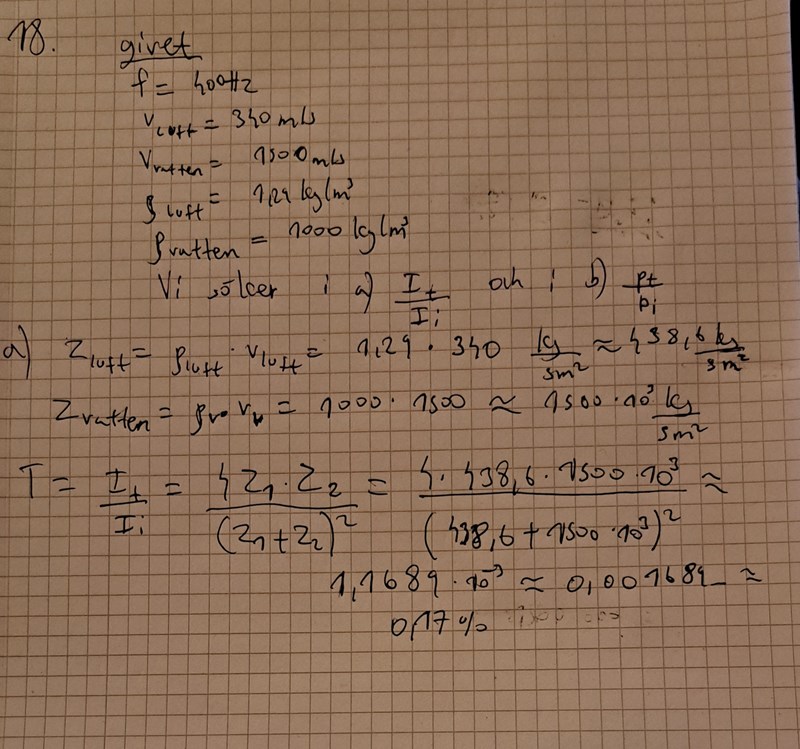 18.
givet
f = 400Hz
v luft = 340 m/s
v vatten = 1500 m/s
ρ luft = 1,29 kg/m³
ρ vatten = 1000 kg/m³
Vi söker i a) I_t/I_i och i b) p_t/p_i
a) Z luft = ρ luft · v luft = 1,29 · 340 kg/sm² ≈ 438,6 kg/sm²
Z vatten = ρ_v · v_v = 1000 · 1500 ≈ 1500 · 10³ kg/sm²
T = I_t/I_i = 4Z₁·Z₂/(Z₁+Z₂)² = 4 · 438,6 · 1500 · 10³/(438,6 + 1500 · 10³)² ≈
1,1689 · 10⁻³ ≈ 0,001689 ≈
0,17%